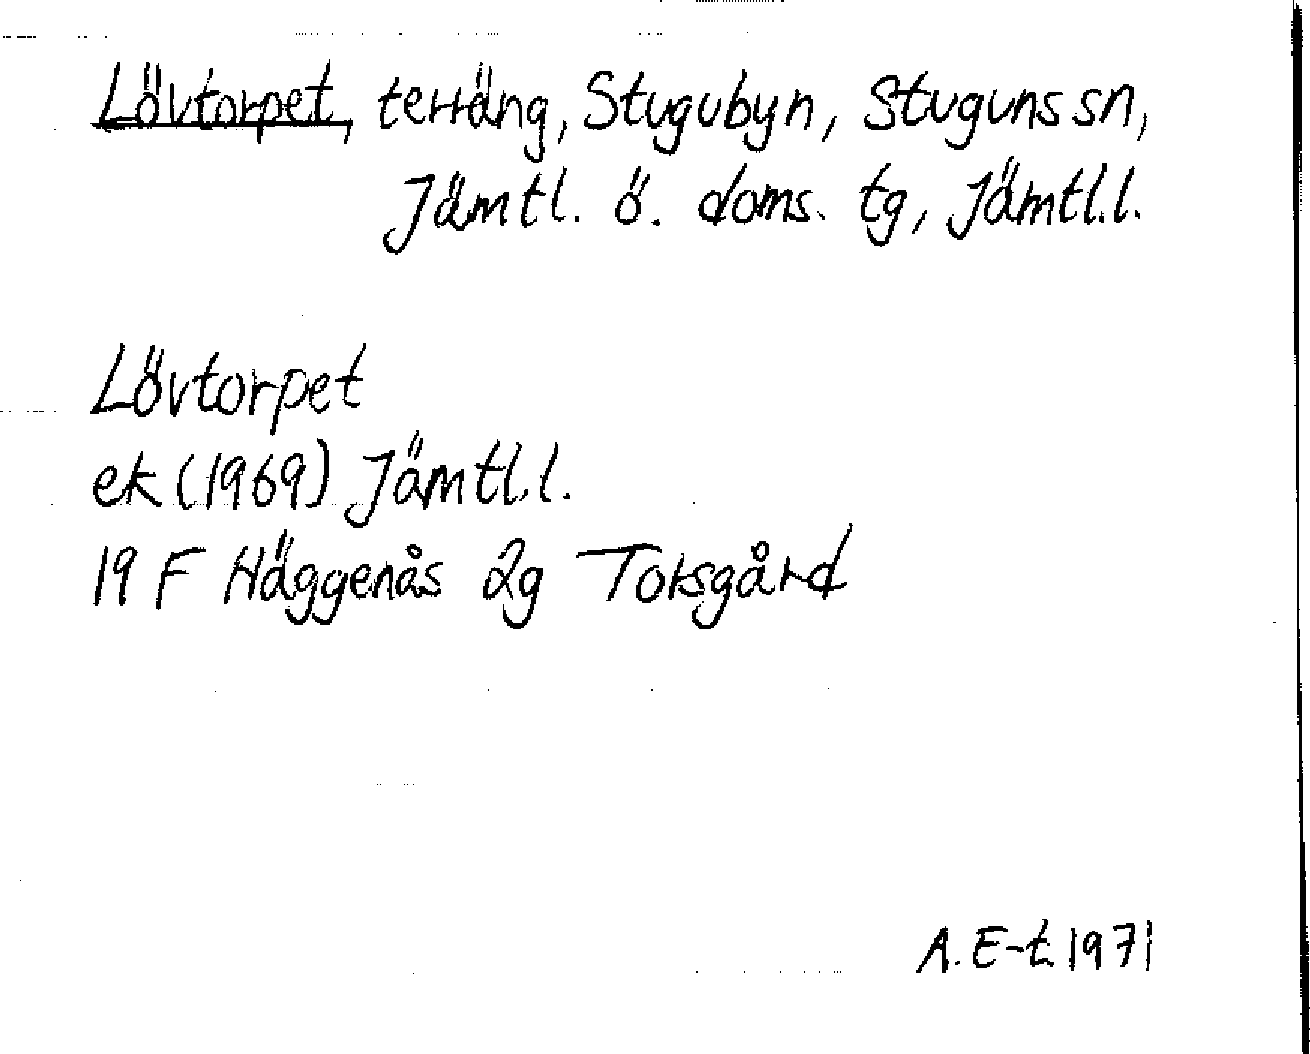 Lövtorpet, terräng, Stugubyn, Stuguns sn,
Jämtl. ö. doms. tg, Jämtl.l.
Lövtorpet
ek (1969) Jämtl.l.
19 F Häggenås 2g Torsgård
A. E-t 1971